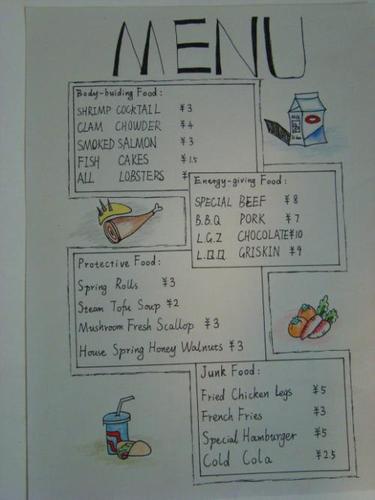 MENU
Body-buiding Food:
SHRIMP COCKTAIL ¥3
CLAM CHOWDER ¥4
SMOKED SALMON ¥3
FISH CAKES ¥1.5
ALL LOBSTERS
Energy-giving Food:
SPECIAL BEEF ¥8
B.B.Q PORK ¥7
L.G.Z CHOCOLATE ¥10
L.Q.Q GRISKIN ¥9
Protective Food:
Spring Rolls ¥3
Steam Tofu Soup ¥2
Mushroom Fresh Scallop ¥3
House Spring Honey Walnuts ¥3
Junk Food:
Fried Chicken legs ¥5
French Fries ¥3
Special Hamburger ¥5
Cold Cola ¥2.5